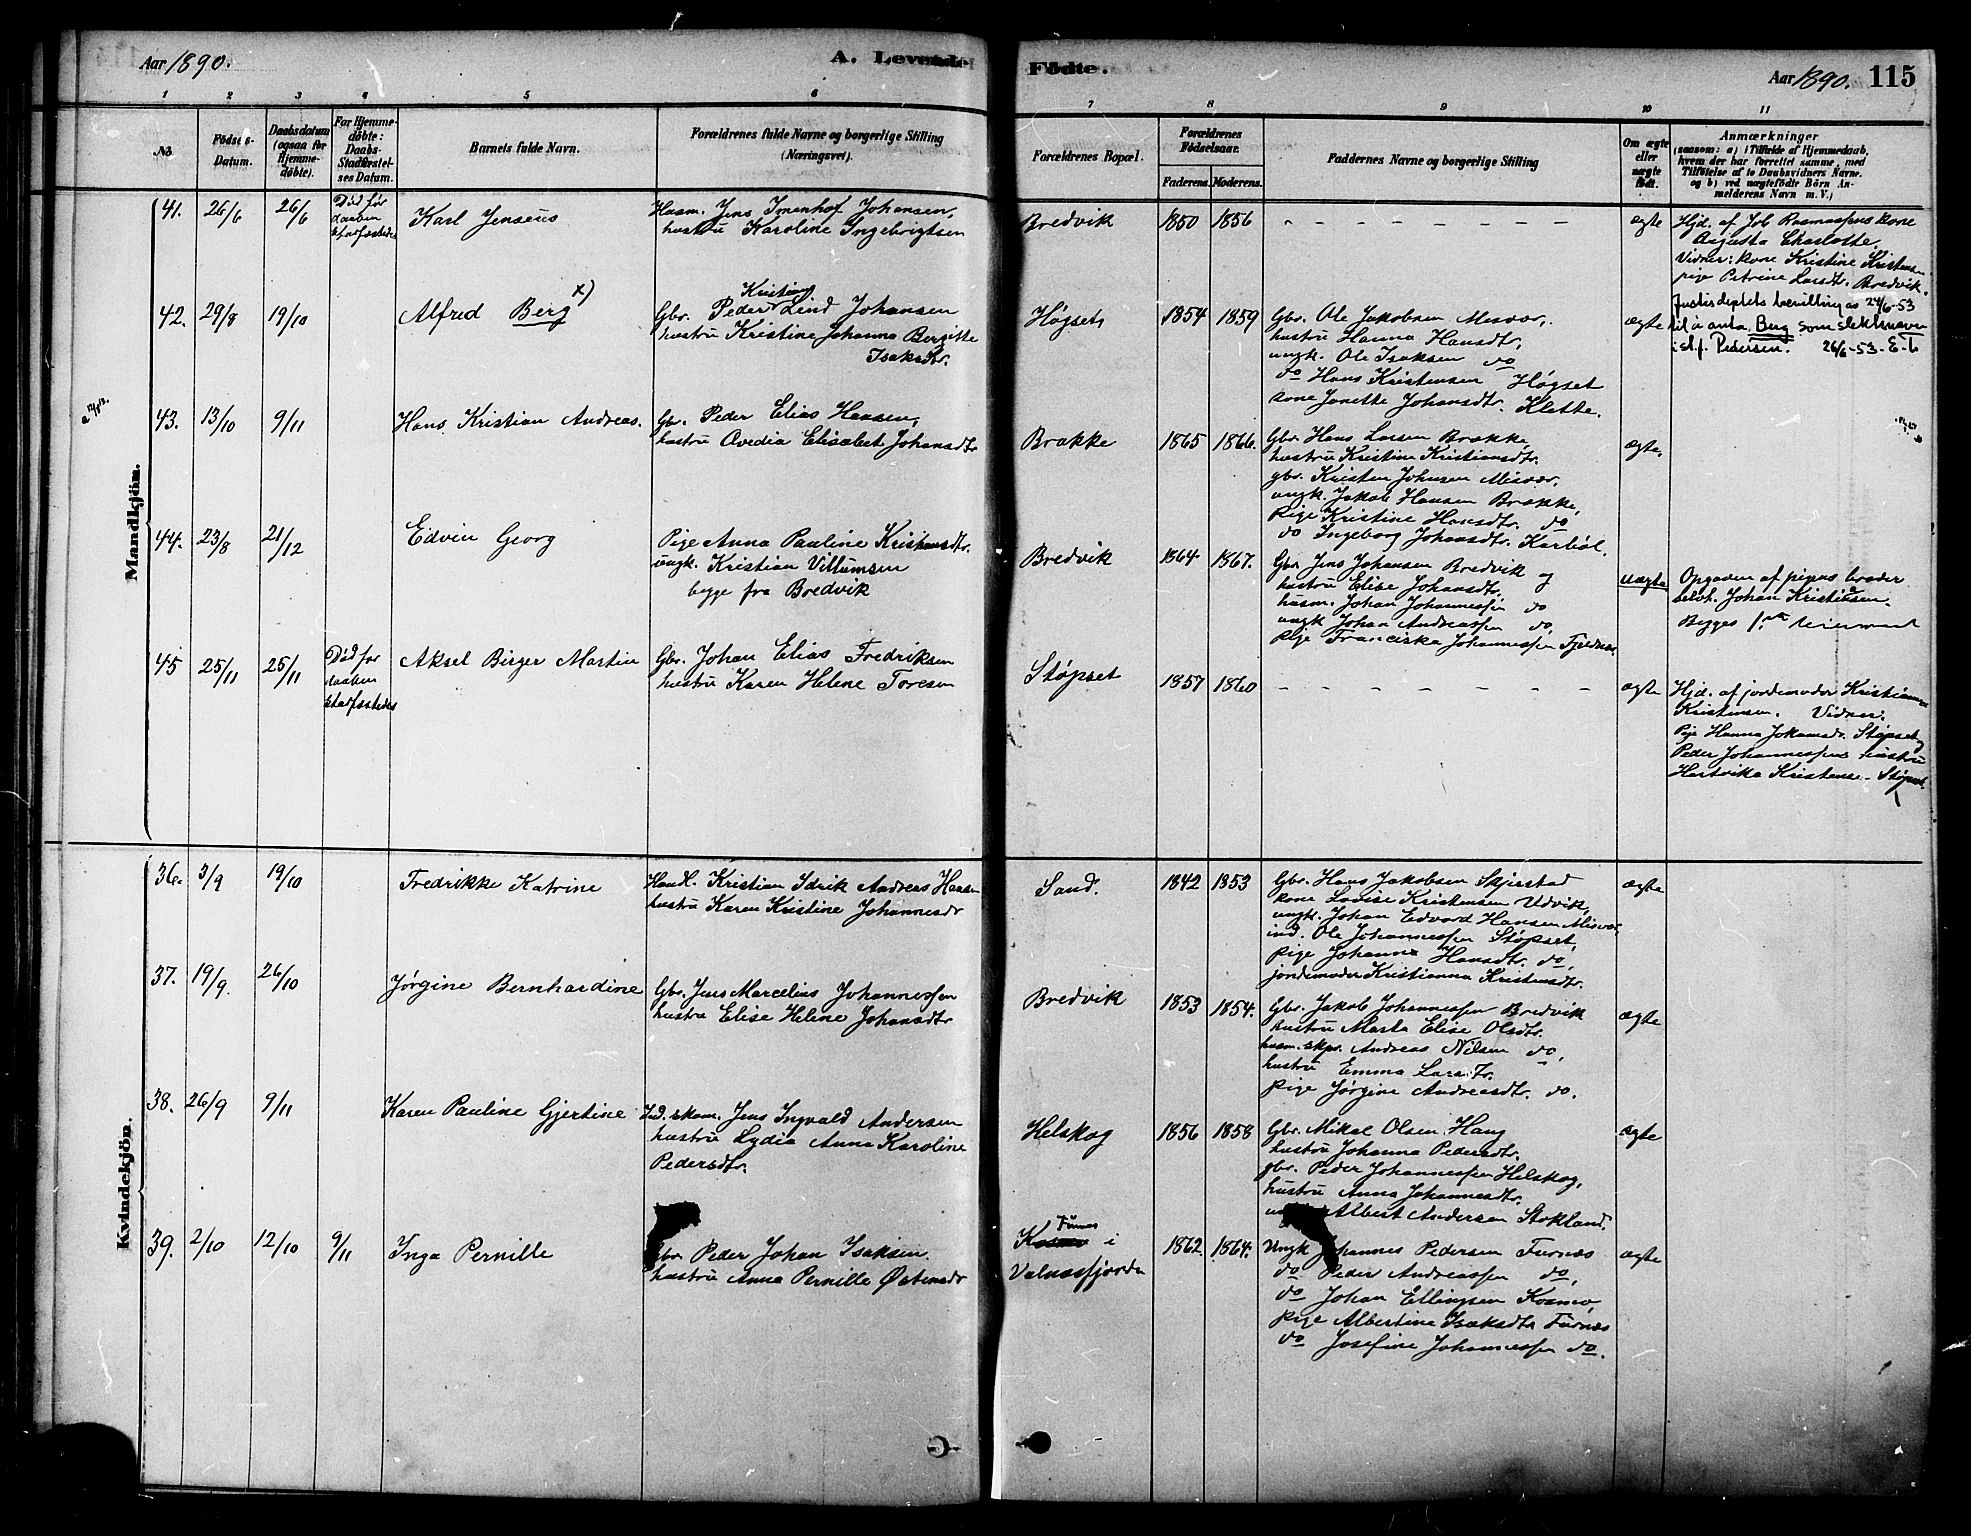 Aar 1890.
A. Levende Födte.
Aar 1890. 115
1 2 3 4 5 6 7 8 9 10 11
No.
Födsels-
Datum.
Daabsdatum
(ogsaa for
Hjemme-
döbte).
For Hjemme-
döbte:
Daabs-
Stadfæstel-
ses Datum.
Barnets fulde Navn.
Forældrenes fulde Navne og borgerlige Stilling
(Næringsvei).
Forældrenes Bopæl.
Forældrenes
Födselsaar.
Faderens. Moderens.
Faddernes Navne og borgerlige Stilling
Om ægte
eller
uægte
födt.
Anmærkninger
(saasom: a) i Tilfælde af Hjemmedaab,
hvem der har forrettet samme, med
Tilföielse af to Daabsvidners Navne.
og b) ved uægtefödte Börn An-
melderens Navn m. V.)
Mandkjön.
41. 26/6 26/6
Död før
daaben
stadfæstedes
Karl Jenseus
Husm. Jens Imenhof Johansen,
hustru Karoline Ingebrigtsen
Bredvik 1850 1856 - - - - - - - ægte
Hjd. af Job Rasmussens kone
Augusta Charlotte.
Vidner: kone Kristine Kristensen
pige Petrine Larsdtr. Bredvik.
42. 29/8 19/10 Alfred Berg x)
Kristian
Gbr. Peder Lind Johansen
hustru Kristine Johanna Bergitte
Isaksdtr.
Høgset 1854 1859
Gbr. Ole Jakobsen Misvær,
hustru Hanna Hansdtr,
ungk. Ole Isaksen do
do Hans Kristensen Høgset
kone Janette Johansdtr. Klette.
ægte
Justisdeptets bevilling av 24/6-53
til å anta Berg som slektsnavn
i st.f. Pedersen. 26/6-53-E-L
43. 13/10 9/11 Hans Kristian Andreas.
Gbr. Peder Elias Hansen,
hustru Ovedia Elisabet Johansdtr
Brække 1865 1866.
Gbr. Hans Larsen Brække,
hustru Kristine Kristiansdtr.
gbr. Kristen Johnsen Misvær,
ungk. Jakob Hansen Brække,
Pige Kristine Hansdtr. do
do Ingeborg Johansdtr. Karbøl.
ægte.
44. 23/8 21/12 Edvin Georg
Pige Anna Pauline Kristensdtr.
ungk. Kristian Villumsen
begge fra Bredvik
Bredvik 1864 1867.
Gbr. Jens Johansen Bredvik og
hustru Elise Johansdtr.
husm. Johan Johannessen do
ungk Johan Andreassen do,
pige Franciska Johannessen Fjeldnæs.
uægte
Opgaven af pigens broder
selvh. Johan Kristiansen.
Begges 1ste leiermaal
45 25/11 25/11
Död før
daaben
stadfæstedes
Aksel Birger Martin
Gbr. Johan Elias Fredriksen
hustru Karen Helene Toresen
Støpset 1857 1860 - - - - - - - ægte
Hjd. af jordemoder Kristianna
Kristensen. Vidner:
Pige Hanna Johansdr. Støpset og
Peder Johannessens hustru
Hartvika Kristense- Støpset.
Kvindekjön.
36. 3/9 19/10 Fredrikke Katrine
Handl. Kristian Idrik Andreas Hansen
hustru Karen Kristine Johannesdr
Sand. 1842 1853
Gbr. Hans Jakobsen Skjerstad
kone Lovise Kristensen Udvik,
ungk. Johan Edvard Hansen Misvær,
ind. Ole Johannessen Støpset,
pige Johanna Hansdtr. do,
jordemoder Kristianna Kristensdtr.
ægte
37. 19/9. 26/10 Jørgine Bernhardine
Gbr. Jens Marcelius Johannessen
hustru Elise Helene Johansdtr
Bredvik 1853 1854.
Gbr. Jakob Johannessen Bredvik
hustru Marta Elise Olsdtr.
husm. skpr. Andreas Nilsen do,
hustru Emma Larsdtr.
pige Jørgine Andreasdtr. do.
ægte
38. 26/9 9/11 Karen Pauline Gjertine
Ind. skom. Jens Ingvald Andersen
hustru Lydia Anna Karoline
Pedersdtr.
Helskog 1856 1858
Gbr. Mikal Olsen Haug
hustru Johanna Pedersdtr.
gbr. Peder Johannessen Helskog,
hustru Anna Johannesdtr.
Albert Andersen Stokland.
ægte
39. 2/10 12/10 9/11 Inga Pernille
Gbr. Peder Johan Isaksen.
hustru Anna Pernille Østensdr
Furnes
Kosmo i
Valnesfjorden
1862 1864.
Ungk Johannes Pedersen Furnæs
do Peder Andreassen do,
do Johan Ellingsen Kosmo,
pige Albertine Isaksdtr Furnæs
do Josefine Johannessen do.
ægte